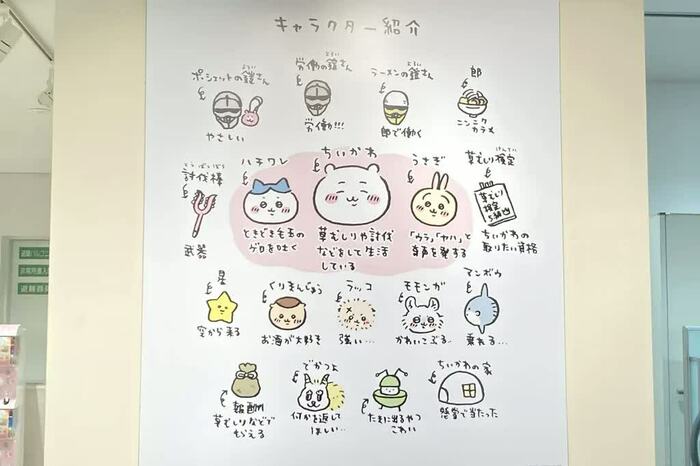 キャラクター紹介
ポシェットの鎧さん
よろい
やさしい
労働の鎧さん
よろい
労働!!!
ラーメンの鎧さん
よろい
郎で働く
郎
ニンニク
カラメ
討伐棒
とうばつぼう
武器
ハチワレ
ときどき毛玉の
ゲロを吐く
ちいかわ
草むしりや討伐
などをして生活
している
うさぎ
「ウラ」「ヤハ」と
奇声を発する
草むしり検定
けんてい
草むしり
検定
5級
ちいかわの
取りたい資格
星
空から来る
くりまんじゅう
お酒が大好き
ラッコ
強い…
モモンガ
かわいこぶる…
マンボウ
乗れる…
報酬
草むしりなどで
もらえる
でかつよ
何かを返して
ほしい…
たまに出るやつ
こわい
ちいかわの家
懸賞で当たった